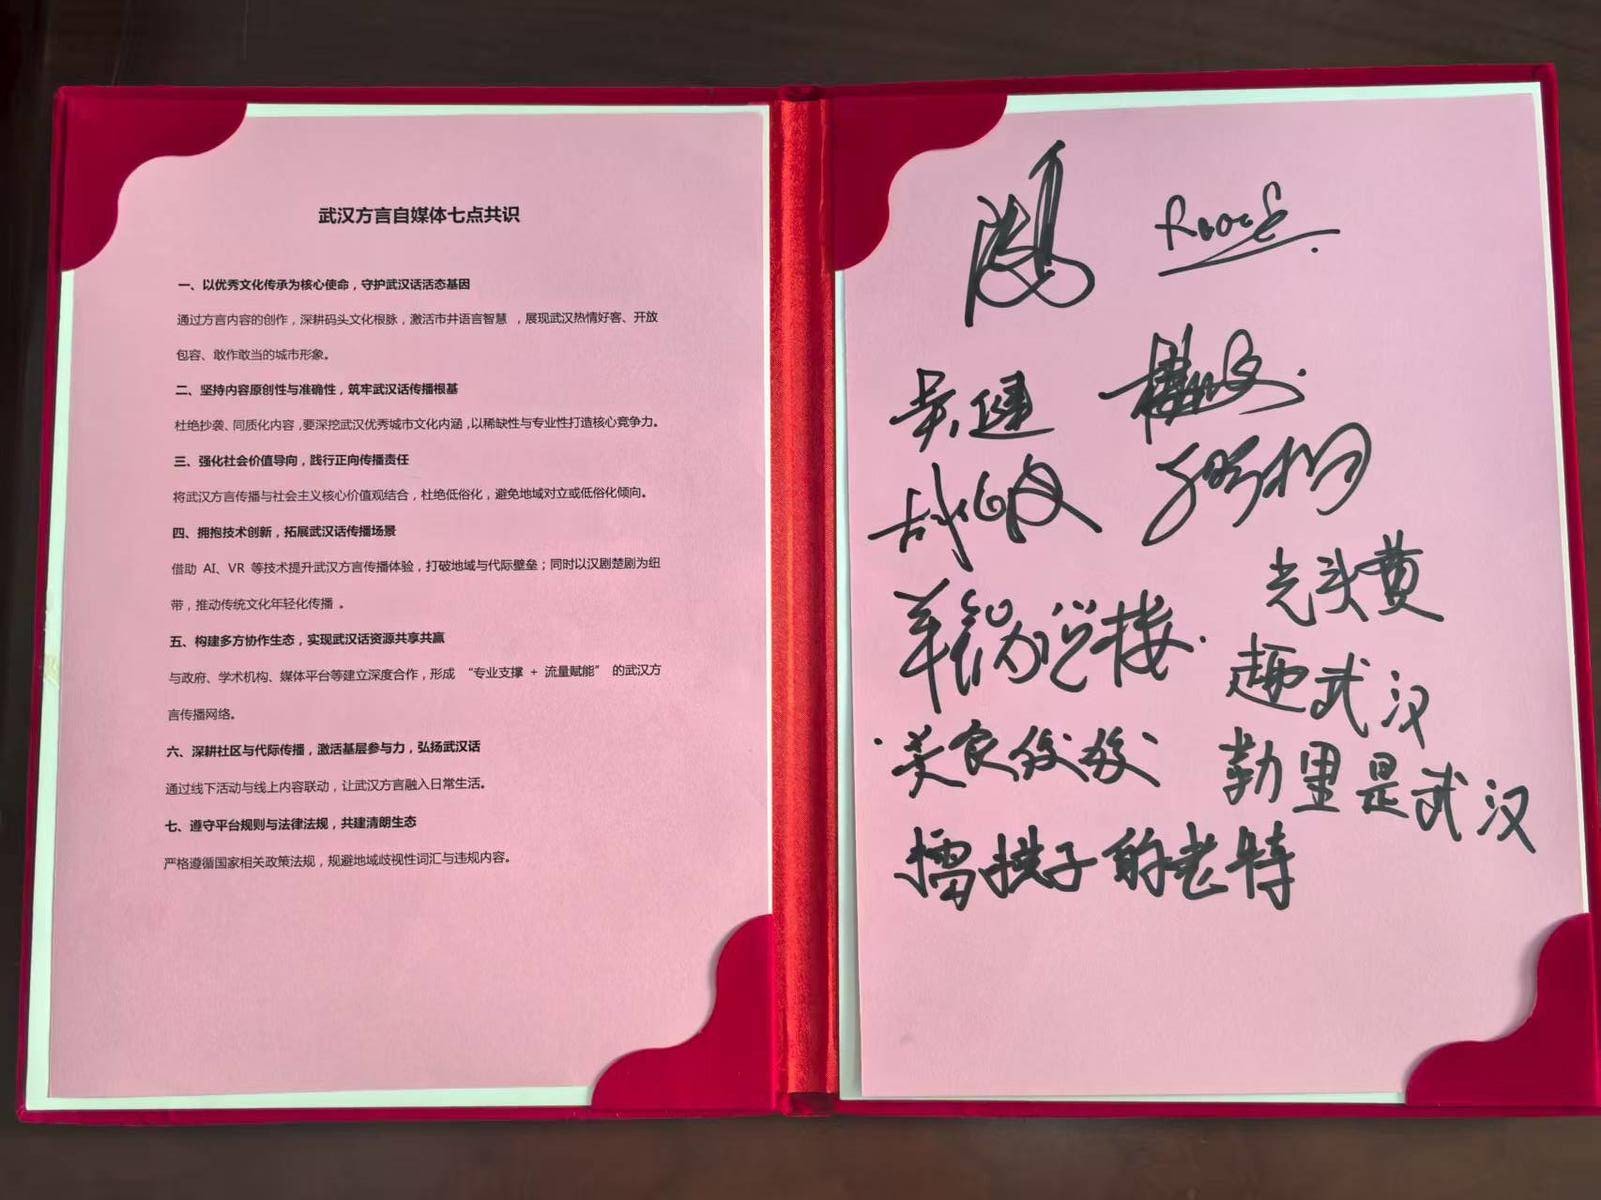 武汉方言自媒体七点共识
一、以优秀文化传承为核心使命，守护武汉话活态基因
通过方言内容的创作，深耕码头文化根脉，激活市井语言智慧 ，展现武汉热情好客、开放
包容、敢作敢当的城市形象。
二、坚持内容原创性与准确性，筑牢武汉话传播根基
杜绝抄袭、同质化内容，要深挖武汉优秀城市文化内涵，以稀缺性与专业性打造核心竞争力。
三、强化社会价值导向，践行正向传播责任
将武汉方言传播与社会主义核心价值观结合，杜绝低俗化，避免地域对立或低俗化倾向。
四、拥抱技术创新，拓展武汉话传播场景
借助 AI、VR 等技术提升武汉方言传播体验，打破地域与代际壁垒；同时以汉剧楚剧为纽
带，推动传统文化年轻化传播 。
五、构建多方协作生态，实现武汉话资源共享共赢
与政府、学术机构、媒体平台等建立深度合作，形成 “专业支撑 + 流量赋能” 的武汉方
言传播网络。
六、深耕社区与代际传播，激活基层参与力，弘扬武汉话
通过线下活动与线上内容联动，让武汉方言融入日常生活。
七、遵守平台规则与法律法规，共建清朗生态
严格遵循国家相关政策法规，规避地域歧视性词汇与违规内容。
吴健
光头黄
趣武汉
美食姣姣
勒里是武汉
擂拱子的老特